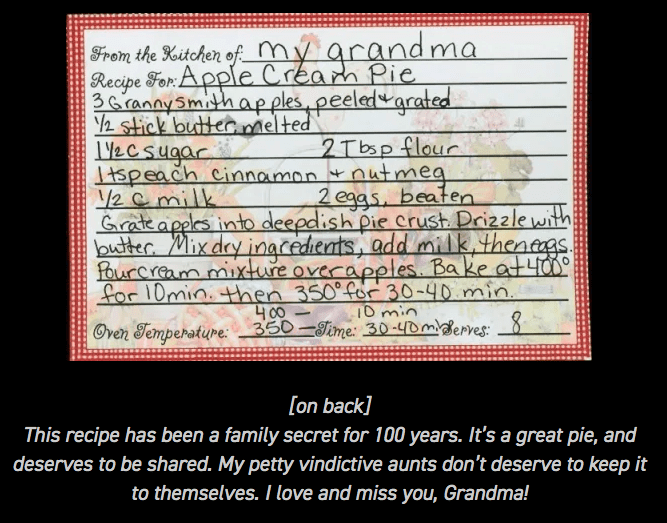 From the Kitchen of: my grandma
Recipe For: Apple Cream Pie
3 Granny smith apples, peeled + grated
1/2 stick butter, melted
1 1/2 C sugar 2 Tbsp flour
1 tsp each cinnamon + nutmeg
1/2 C milk 2 eggs, beaten
Grate apples into deep dish pie crust. Drizzle with
butter. Mix dry ingredients, add milk, then eggs.
Pour cream mixture over apples. Bake at 400°
for 10 min. then 350° for 30-40 min.
400 — 10 min
Oven Temperature: 350 — Time: 30-40 min Serves: 8
[on back]
This recipe has been a family secret for 100 years. It's a great pie, and
deserves to be shared. My petty vindictive aunts don't deserve to keep it
to themselves. I love and miss you, Grandma!